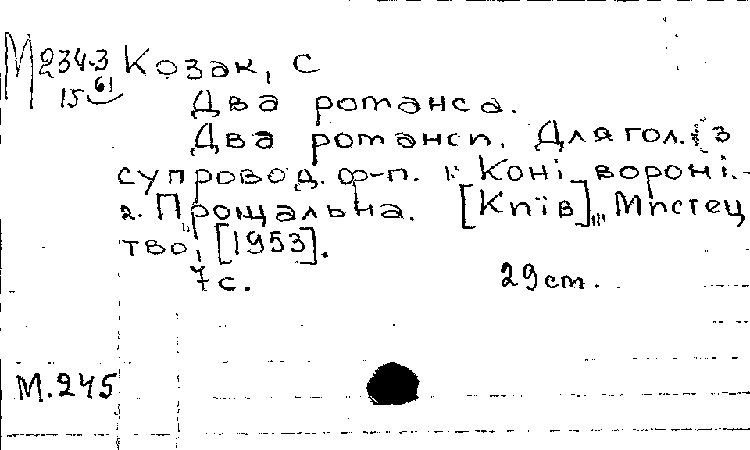 М234.3 Козак, С
15 61
Два романса.
Два романси. Для гол. із
супровод. ф-п. 1. Коні вороні.-
2. Прощальна. [Київ], "Мистец
тво", [1953].
7 с. 29 см.
М.245